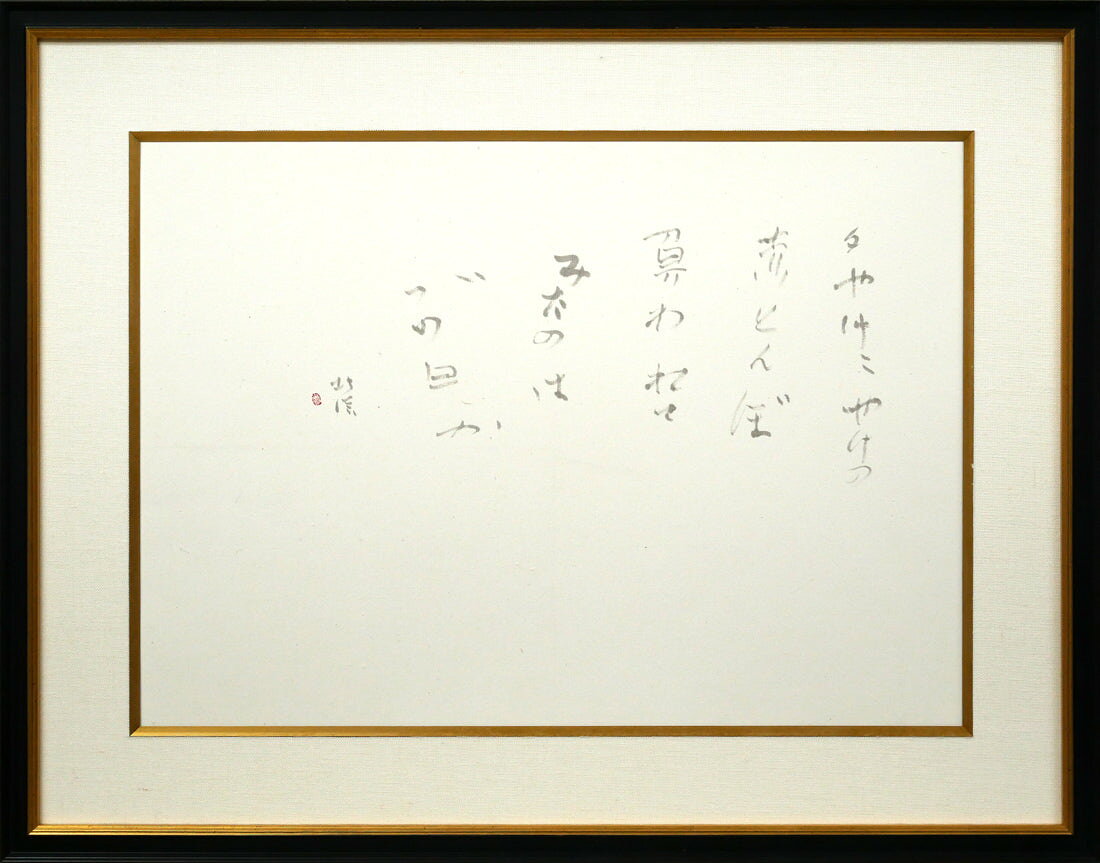 夕やけこやけの
赤とんぼ
負われて
みたのは
いつの日か